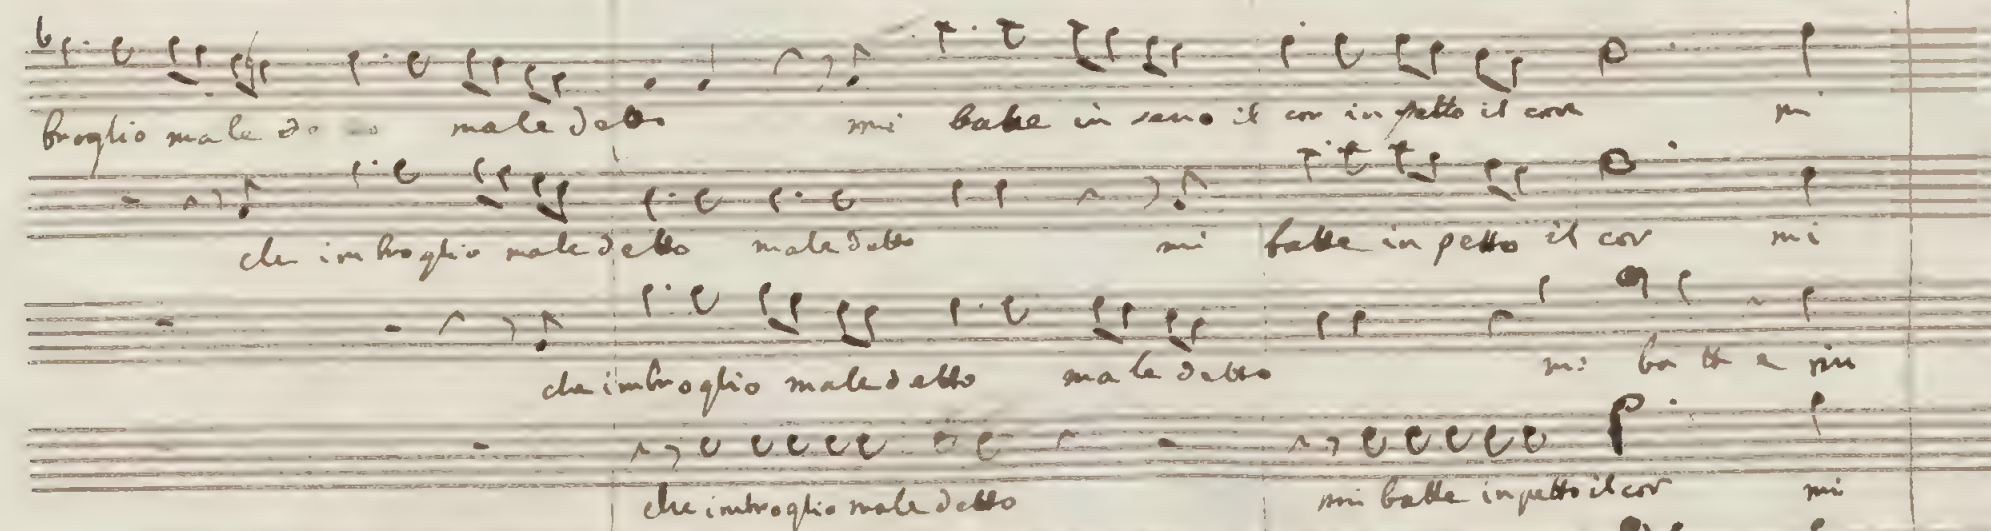 broglio maledetto maledetto mi batte in seno il cor in petto il core mi
che imbroglio maledetto maledetto mi batte in petto il cor mi
che imbroglio maledetto maledetto mi batte in
che imbroglio maledetto mi batte in petto il cor mi